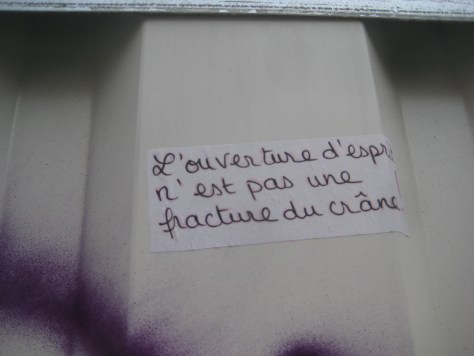 L'ouverture d'espr
n'est pas une
fracture du crâne!